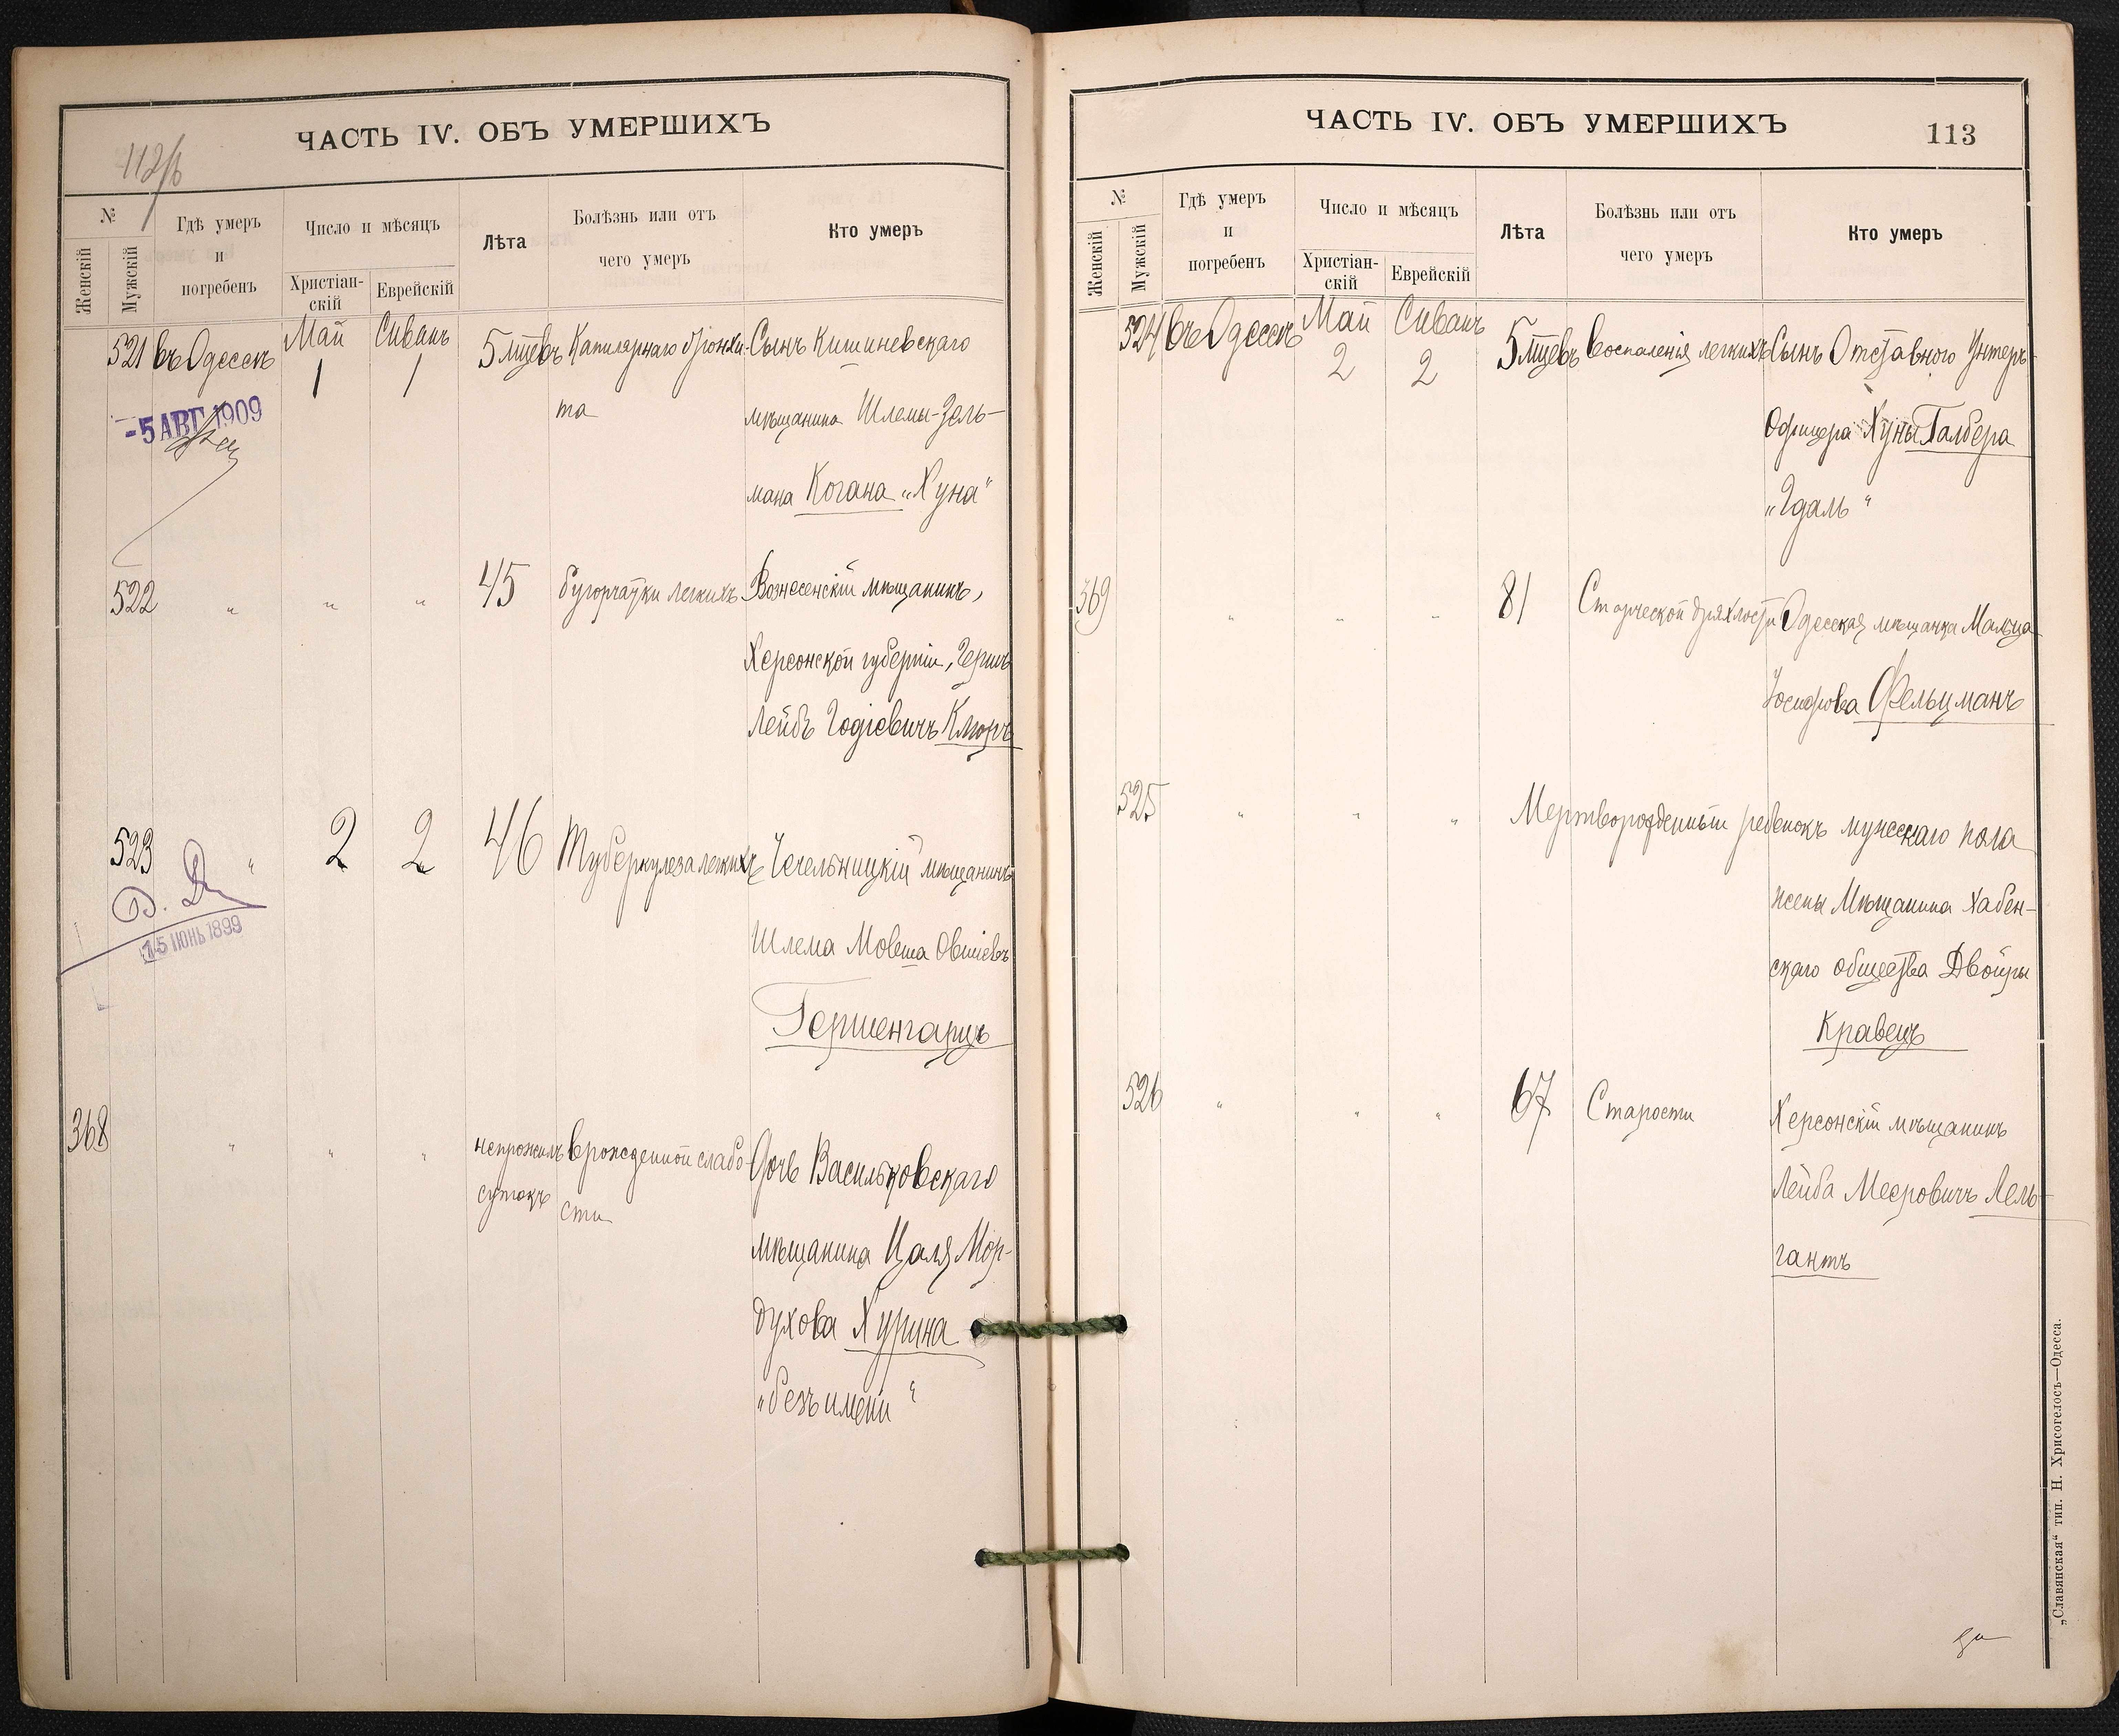 112/б
ЧАСТЬ IV. ОБЪ УМЕРШИХЪ
№
Женскій
Мужскій
Гдѣ умеръ
и
погребенъ
Число и мѣсяцъ
Христіан-
скій
Еврейскій
Лѣта
Болѣзнь или отъ
чего умеръ
Кто умеръ
521 въ Одессѣ Май 1 Сиванъ 1 5 мцевъ Капилярнаго бронхи- Сынъ Кишиневскаго
та мѣщанина Шлемы-Зель-
-5 АВГ 1909
мана Когана „Хуна“
522 „ „ „ 45 бугорчатки легкихъ Вознесенскій мѣщанинъ,
Херсонской губерніи, Гершъ
Лейбъ Годіевичъ
523 „ 2 2 46 Туберкулеза легкихъ Чечельницкій мѣщанинъ
15 ІЮНЬ 1899
Шлема Мовша Овшіевъ
Гершенгарцъ
368 „ „ „ непрожилъ врожденной слабо- Дочь Васильковскаго
сутокъ сти
мѣщанина Цаля Мор-
духова Хурина
„безъ имени“
ЧАСТЬ IV. ОБЪ УМЕРШИХЪ
113
№
Женскій
Мужскій
Гдѣ умеръ
и
погребенъ
Число и мѣсяцъ
Христіан-
скій
Еврейскій
Лѣта
Болѣзнь или отъ
чего умеръ
Кто умеръ
524 въ Одессѣ Май 2 Сиванъ 2 5 мцевъ воспаленія легкихъ Сынъ Отставного Унтеръ-
Офицера Хуны Галбера
„Гдаль“
369 „ „ „ 81 Старческой дряхлости Одесская мѣщанка Малца
Іосифова Фельцманъ
525 „ „ „ Мертворожденный ребенокъ мужескаго пола
жены Мѣщанина Хабен-
скаго общества Двойры
Кравецъ
526 „ „ „ 67 Старости Херсонскій мѣщанинъ
Лейба Мееровичъ Лель-
гантъ
„Славянская“ тип. Н. Хрисогелосъ—Одесса.